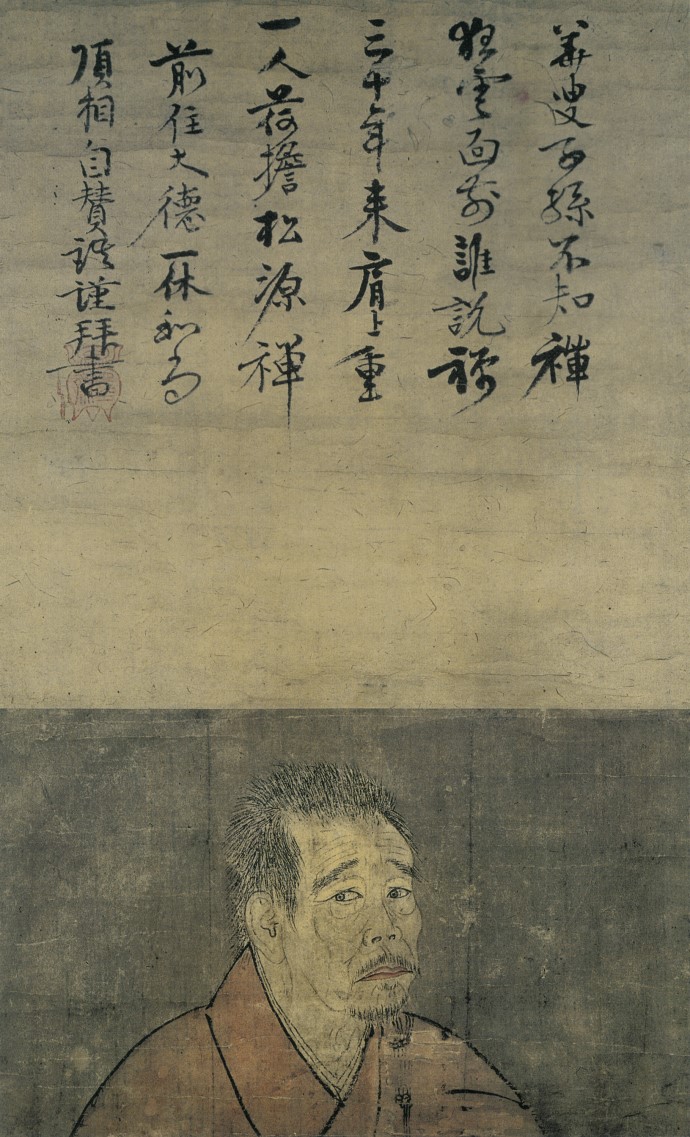 華叟子孫不知禪
狂雲面前誰説禅
三十年来肩上重
一人荷擔松源禪
前住大德一休和尚
頂相自賛謹拝書